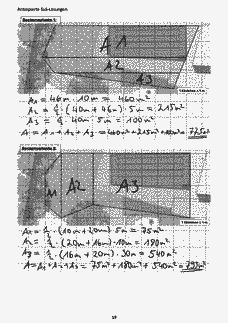 Antarparia Sol-Lösungen
Bastelvariante 1
A 1
A 2
A 3
1 Kästchen ≙ 1 m
A₁ = 46m · 10m = 460m²
A₂ = ½ · (40m + 46m) · 5m = 215m²
A₃ = ½ · 40m · 5m = 100m²
A = A₁ + A₂ + A₃ = 460m² + 215m² + 100m² = 775m²
A1
A2
A3
1 Kästchen ≙ 1 m
A₁ = ½ · (10m + 20m) · 5m = 75m²
A₂ = ½ · (20m + 16m) · 10m = 180m²
A₃ = ½ · (16m + 20m) · 30m = 540m²
A = A₁ + A₂ + A₃ = 75m² + 180m² + 540m² = 795m²